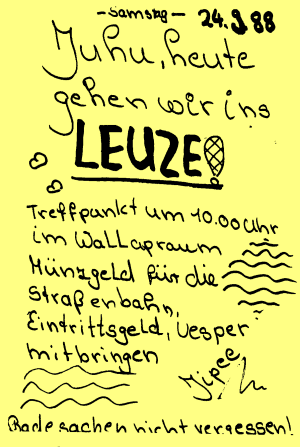 - Samstag - 24.9.88
Juhu, heute
gehen wir ins
LEUZE!
Treffpunkt um 10.00 Uhr
im Wallapraum
Münzgeld für die
Straßenbahn,
Eintrittsgeld, Vesper
mitbringen
Jipee
Badesachen nicht vergessen!